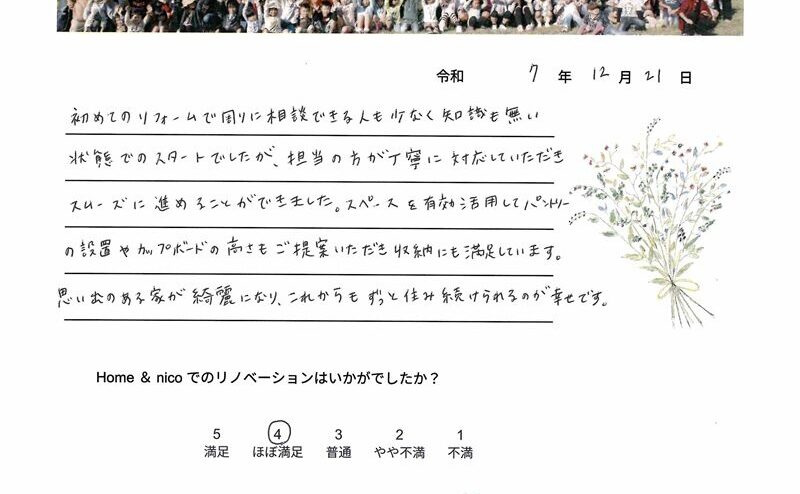 令和 7 年 12 月 21 日
初めてのリフォームで周りに相談できる人も少なく知識も無い
状態でのスタートでしたが、担当の方が丁寧に対応していただき
スムーズに進めることができました。スペースを有効活用してパントリー
の設置やカップボードの高さもご提案いただき収納にも満足しています。
思い出のある家が綺麗になり、これからもずっと住み続けられるのが幸せです。
Home & nico でのリノベーションはいかがでしたか？
5 4 3 2 1
満足 ほぼ満足 普通 やや不満 不満